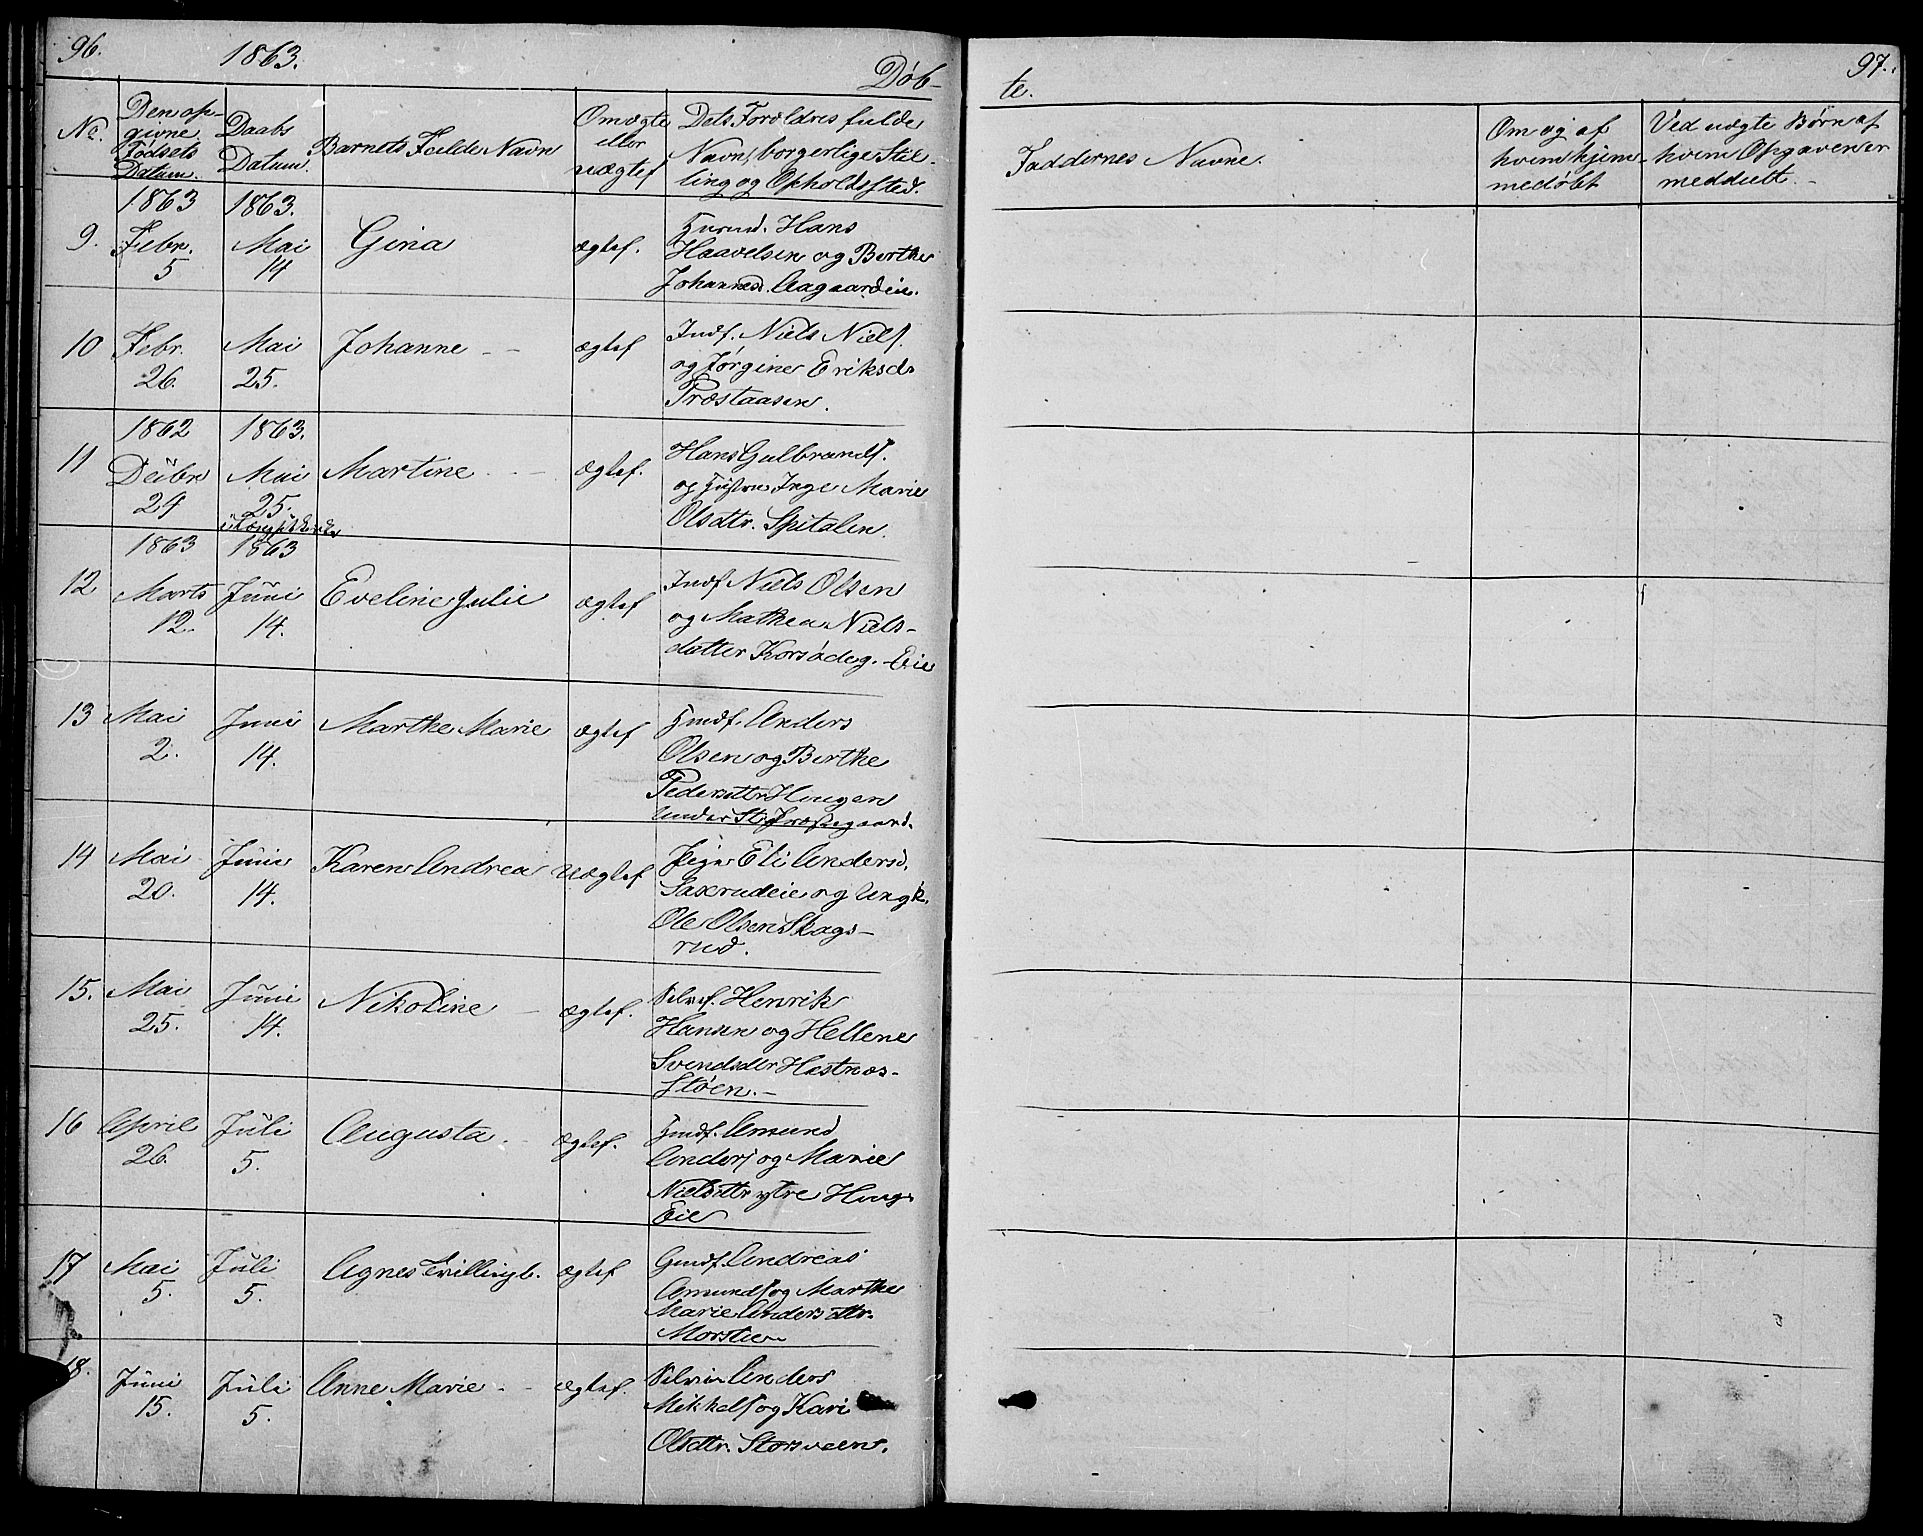 96. 1863. Døb-
No. Den op- givne Fødsels Datum. Daabs Datum. Barnets Fulde Navn Om ægte eller uægtef Dets Forældres fulde Navn, borgerlige Stil- ling og Opholdssted.
1863 1863.
9. Febr. 5 Mai 14 Gina ægtef. Husmd. Hans
Haavelsen og Berthe
Johannesd. Aagaardeie.
10 Febr. 26. Mai 25. Johanne - - ægtef Indf. Niels Niels.
og Jørgine Eriksd.
Præstaasen.
1862 1863.
11 Decbr 24 Mai 25. Martine - - ægtef. Hans Gulbrands.
og Hustru Inge Marie
Olsdttr. Spitalen.
1863 1863
12 Marts 12. Juni 14. Eveline Julie ægtef Indf. Niels Olsen
og Mathea Niels-
datter Korsødeg. Eie
13 Mai 2. Juni 14. Marthe Marie ægtef Hmdf. Anders
Olsen og Berthe
Pedersdttr Haugen
under St. Præstegaard.
14 Mai 20. Juni 14. Karen Andrea Uægtef Pige Eli Andersd.
Saxerudeie og Ungk.
Ole Olsen Skags-
rud.
15. Mai 25. Juni 14. Nikoline - ægtef. Selvef. Henrik
Hansen og Hellene
Svendsder Hestnæs-
Støen. -
16 April 26. Juli 5. Augusta - - ægtef. Hmdf. Amund
Anders. og Marie
Nielsdttr ytre Houg
Eie
17 Mai 5. Juli 5. Agnes Tvillingb. ægtef Gmdf. Andreas
Amunds. og Marthe
Marie Andersdttr.
Morstue
18. Juni 15. Juli 5. Anne Marie - - ægtef. Selvei Anders
Mikkels. og Kari
Olsdttr. Storsveen.
te. 97.
Faddernes Navne. Om og af hvem hjem- medøbt Ved uægte Børn af hvem Opgaven er meddelt. -